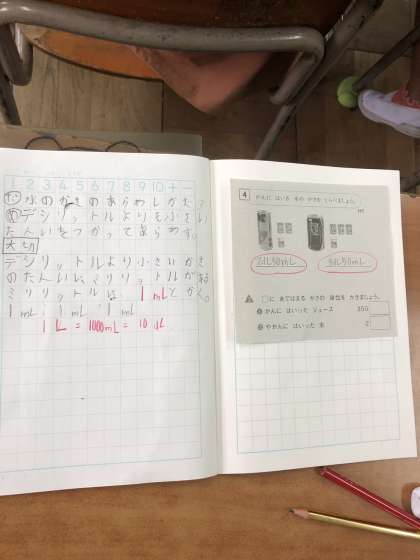 1 2 3 4 5 6 7 8 9 10 + −
水のかさのあらわしかた?
め デシリットルより小さい
たんいをつかってあらわす。
大切
デシリットルより小さいかさ
のたんいに、ミリリットルがある
ミリリットルは 1mLとかく。
1mL 1mL 1mL
1L = 1000mL = 10dL
4 かんに はいる 水の かさを くらべましょう。
2dL50mL 3dL50mL
□に あてはまる かさの 単位を かきましょう。
かんに はいった ジュース 350
やかんに はいった 水 2